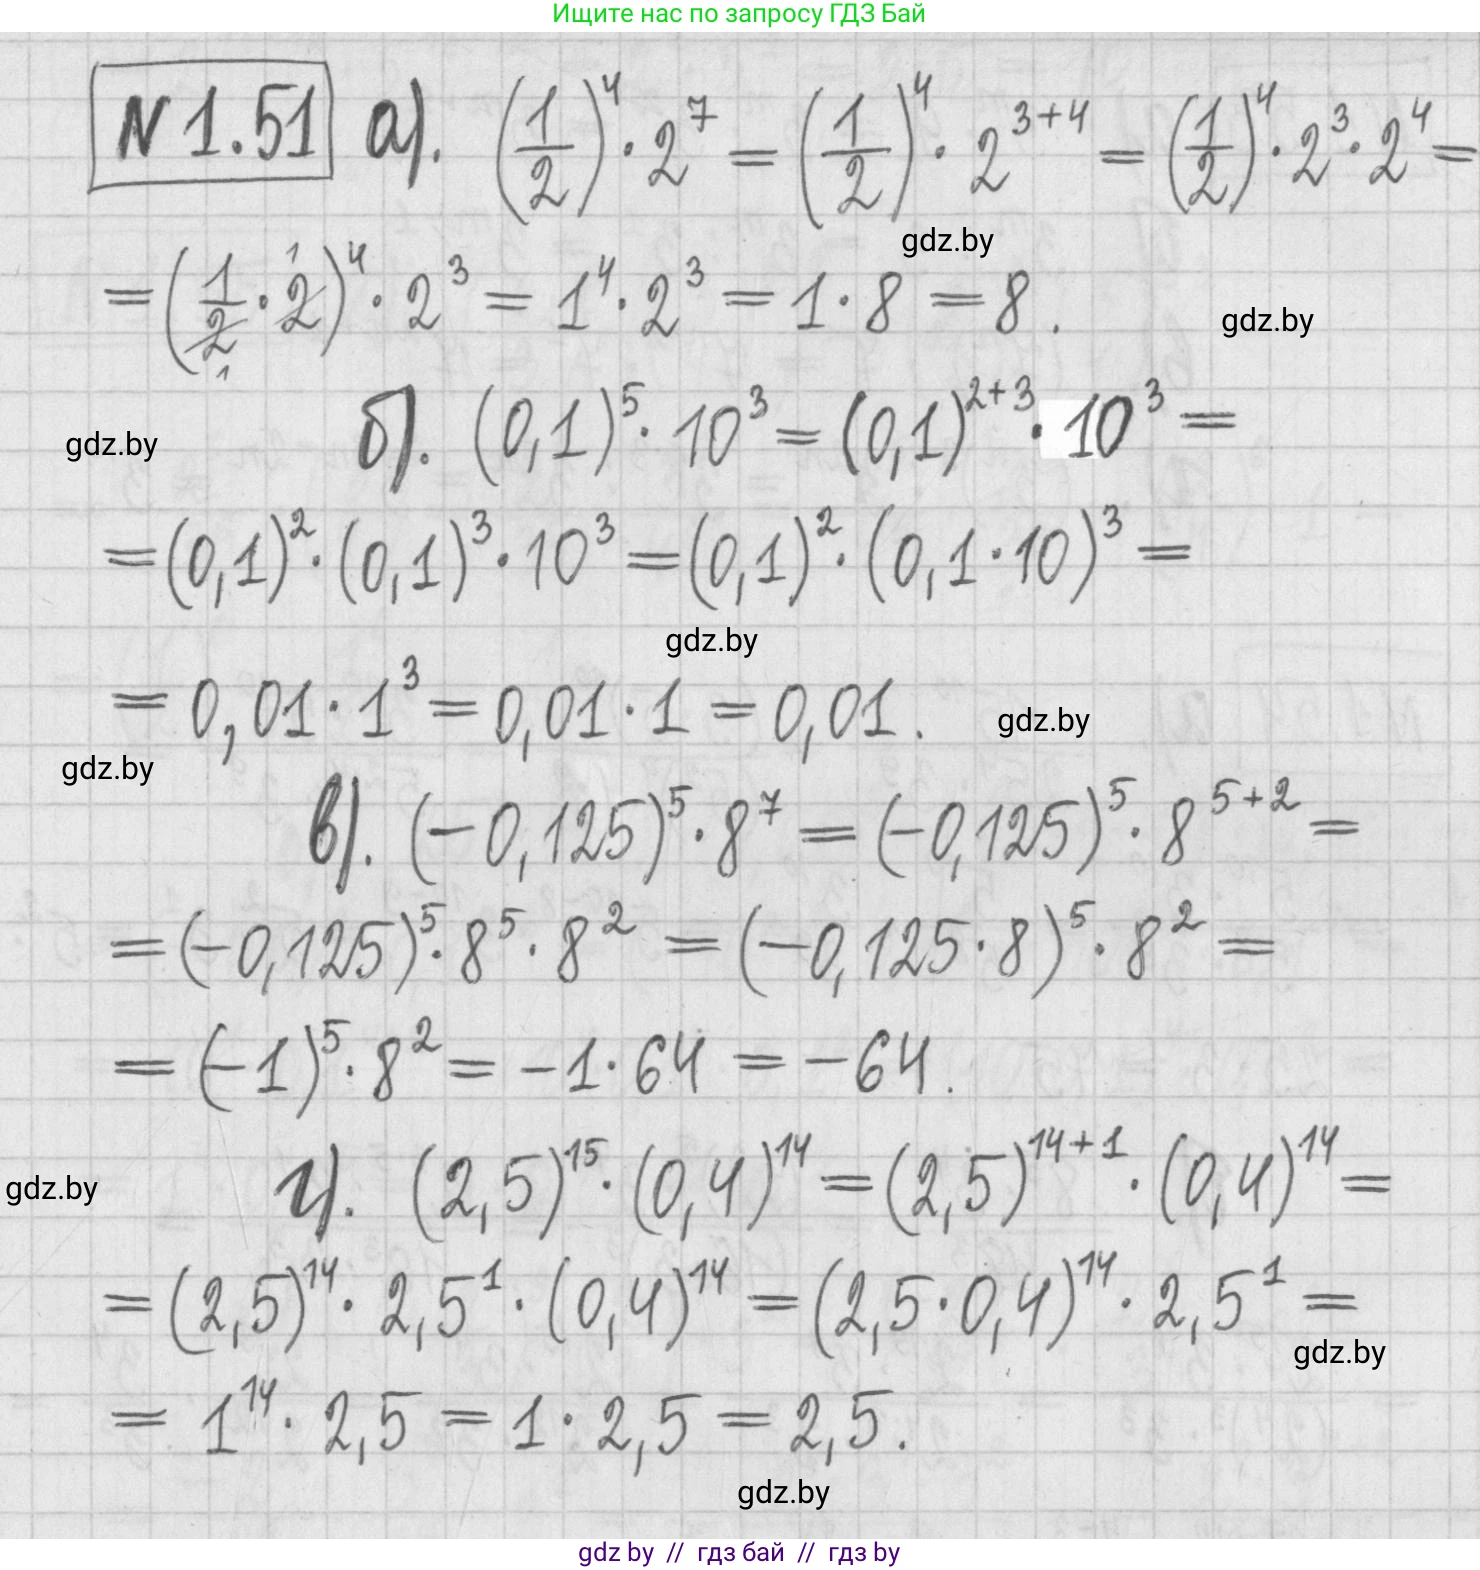 Ищите нас по запросу ГДЗ Бай
N 1.51 а). (1/2)^4 · 2^7 = (1/2)^4 · 2^{3+4} = (1/2)^4 · 2^3 · 2^4 =
gdz.by
= (1/2 · 2)^4 · 2^3 = 1^4 · 2^3 = 1 · 8 = 8.
gdz.by
б). (0,1)^5 · 10^3 = (0,1)^{2+3} · 10^3 =
gdz.by
= (0,1)^2 · (0,1)^3 · 10^3 = (0,1)^2 · (0,1 · 10)^3 =
gdz.by
= 0,01 · 1^3 = 0,01 · 1 = 0,01.
gdz.by
gdz.by
в). (-0,125)^5 · 8^7 = (-0,125)^5 · 8^{5+2} =
= (-0,125)^5 · 8^5 · 8^2 = (-0,125 · 8)^5 · 8^2 =
= (-1)^5 · 8^2 = -1 · 64 = -64.
г). (2,5)^15 · (0,4)^14 = (2,5)^{14+1} · (0,4)^14 =
gdz.by
= (2,5)^14 · 2,5^1 · (0,4)^14 = (2,5 · 0,4)^14 · 2,5^1 =
gdz.by
= 1^14 · 2,5 = 1 · 2,5 = 2,5.
gdz.by
gdz by // гдз бай // гдз by